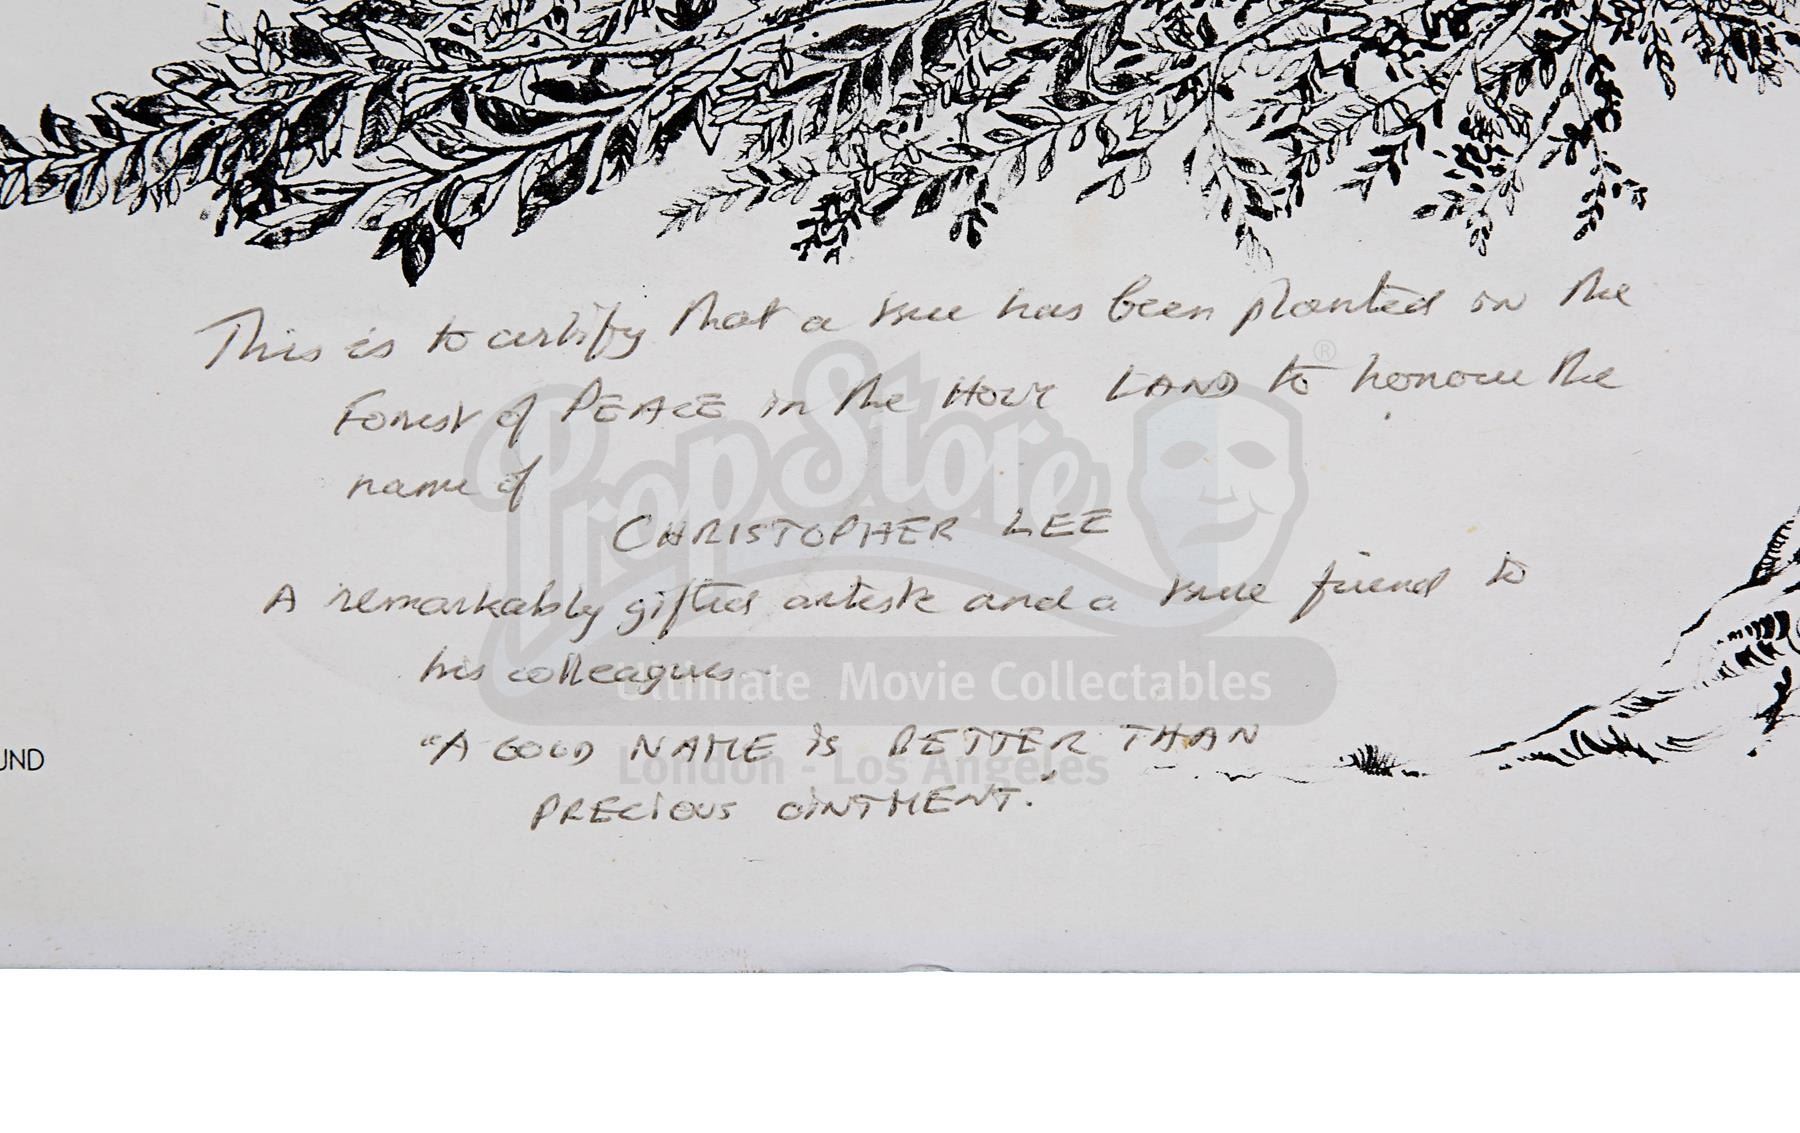 This is to certify that a tree has been planted in the
Forest of PEACE in the HOLY LAND to honour the
name of
CHRISTOPHER LEE
A remarkably gifted artiste and a true friend to
his colleagues.
"A GOOD NAME is BETTER THAN
PRECIOUS OINTMENT.
UND
PropStore ®
Ultimate Movie Collectables
London - Los Angeles